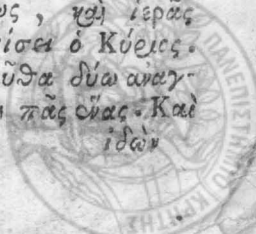 ους, καὶ ἱερᾶς
ίσει ὁ Κύριος.
οῦθα δύω ἀναγ-
πᾶς ἕνας. Καὶ
ἰδὼν
ΠΑΝΕΠΙΣΤΗΜΙΟ ΚΡΗΤΗΣ